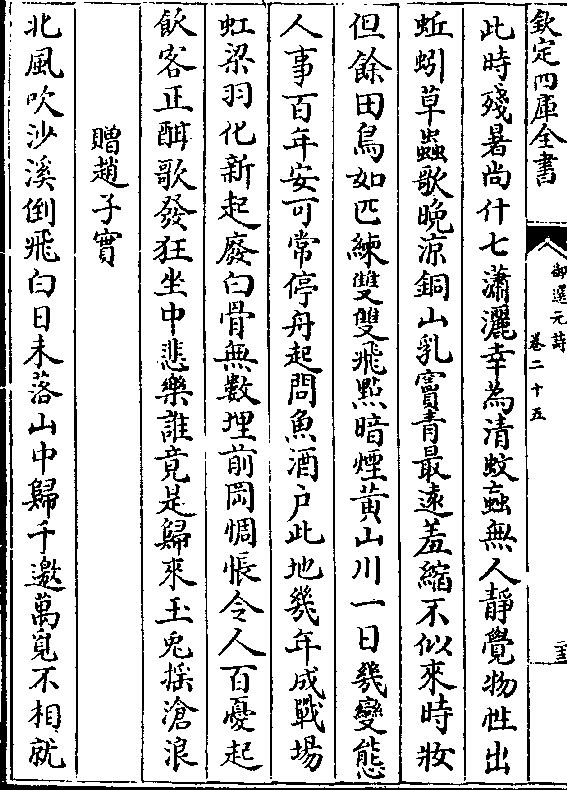 欽定四庫全書
御選元詩
卷二十五
此時殘暑尚什七瀟灑幸為清蚊蝱無人靜覺物性出
蚯蚓草蟲歌晚涼銅山乳竇青最遠羞縮不似來時妝
但餘田鳥如匹練雙雙飛㸃暗煙黄山川一日幾變態
人事百年安可常停舟起問魚酒户此地幾年成戰場
虹梁羽化新起廢白骨無數埋前岡惆悵令人百憂起
飲客正酣歌發狂坐中悲樂誰竟是歸來玉兔揺滄浪
贈趙子實
北風吹沙溪倒飛白日未落山中歸千邀萬覓不相就